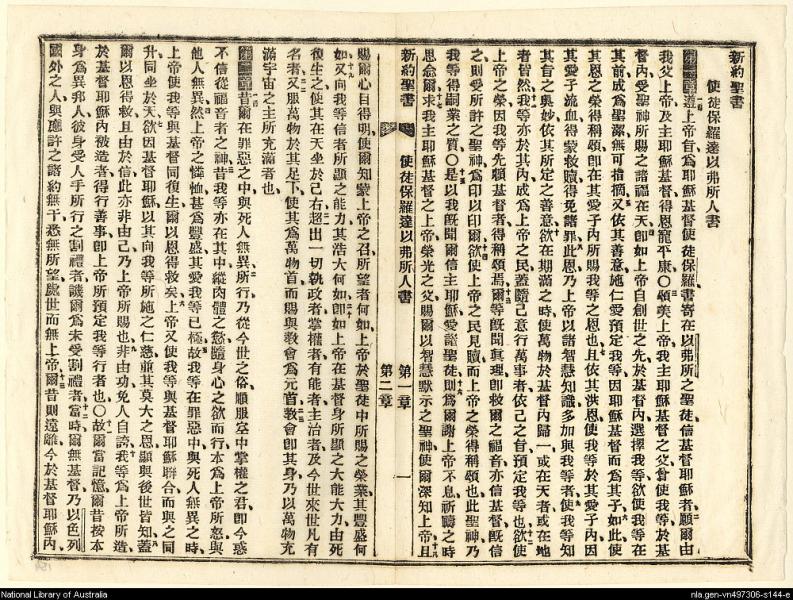 新約聖書
使徒保羅達以弗所人書
遵上帝旨爲耶穌基督使徒保羅書寄在以弗所之聖徒信基督耶穌者願爾由
我父上帝及主耶穌基督得恩寵平康〇頌美上帝我主耶穌基督之父曾使我等於基
督內受聖神所賜之諸福在天卽如上帝自創世之先於基督內選擇我等欲使我等在
其前成爲聖潔無可指摘又依其善意施仁愛預定我等因耶穌基督而爲其子如此使
其恩之榮得稱頌卽在其愛子內所賜我等之恩也且依其洪恩使我等於其愛子內因
其愛子流血得蒙救贖得免諸罪此恩乃上帝以諸智慧知識多加與我等者使我等知
其旨之奧妙依其所定之善意欲在期滿之時使萬物於基督內歸一或在天者或在地
者皆然我等亦於其內成爲上帝之民蓋隨己意行萬事者依己之旨預定我等也欲使
上帝之榮因我等先賴基督者得稱頌焉爾等旣聞眞理卽救爾之福音亦信基督旣信
之則受所許之聖神爲印以印爾欲使上帝之民見贖而上帝之榮得稱頌也此聖神乃
我等得嗣業之質〇是以我旣聞爾信主耶穌愛諸聖徒則爲爾謝上帝不息祈禱之時
思念爾求我主耶穌基督之上帝榮光之父賜爾以智慧默示之聖神使爾深知上帝且
新約聖書 使徒保羅達以弗所人書 第一章 第二章 一
賜爾心目得明使爾知蒙上帝之召所望者何如上帝於聖徒中所賜之榮業其豐盛何
如又向我等信者所顯之能力其浩大何如卽如上帝在基督身所顯之大能大力由死
復生之使其在天坐於己右超出一切執政者掌權者有能者主治者及今世來世凡有
名者又服萬物於其足下使其爲萬物首而賜與敎會爲元首敎會卽其身乃以萬物充
滿宇宙之主所充滿者也
昔爾在罪惡之中與死人無異所行乃從今世之俗順服空中掌權之君卽今惑
不信從福音者之神昔我等亦在其中縱肉體之慾隨身心之欲而行本爲上帝所怒與
他人無異然上帝之憐恤甚爲豐盛其愛我等已極故我等在罪惡中與死人無異之時
上帝使我等與基督同復生爾以恩得救矣上帝又使我等與基督耶穌聯合而與之同
升同坐於天欲因基督耶穌以其向我等所施之仁慈並其莫大之恩顯與後世皆知蓋
爾以恩得救且由於信此亦非由己乃上帝所賜也非由功免人自誇我等爲上帝所造
於基督耶穌內被造者得行善事卽上帝所預定我等行者也〇故爾當記憶爾昔按本
身爲異邦人彼身受人手所行之割禮者譏爾爲未受割禮者當時爾無基督乃以色列
國外之人與應許之諸約無干悉無所望處世而無上帝爾昔則遠離今於基督耶穌內
National Library of Australia
nla.gen-vn497306-s144-e